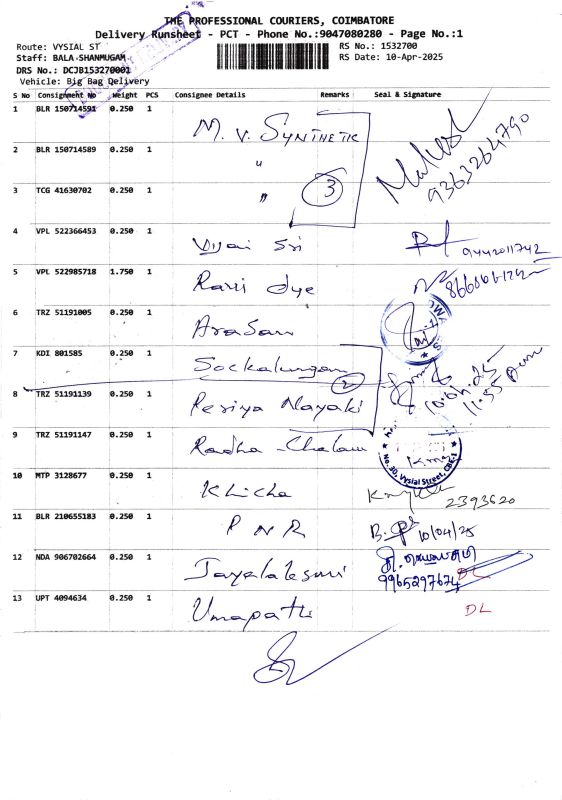 THE PROFESSIONAL COURIERS, COIMBATORE
Delivery Runsheet - PCT - Phone No.:9047080280 - Page No.:1
Route: VYSIAL ST RS No.: 1532700
Staff: BALA SHANMUGAM RS Date: 10-Apr-2025
DRS No.: DCJB153270001
Vehicle: Big Bag Delivery
S No Consignment No Weight PCS Consignee Details Remarks Seal & Signature
1 BLR 150714591 0.250 1 M. V. SYNTHETIK 9363264790
2 BLR 150714589 0.250 1 "
3 TCG 41630702 0.250 1 " 3
4 VPL 522366453 0.250 1 Vijai Sri 9442011742
5 VPL 522985718 1.750 1 Ravi dye
6 TRZ 51191005 0.250 1 Arasan
7 KDI 801585 0.250 1 Sockalingam 2
8 TRZ 51191139 0.250 1 Periya Nayaki
9 TRZ 51191147 0.250 1 Radha No. 30, Vysial Street, CBE-1
10 MTP 3128677 0.250 1 Khicha 2393620
11 BLR 210655183 0.250 1 P N R 10/04/25
12 NDA 906702664 0.250 1 9965297674 DL
13 UPT 4094634 0.250 1 Umapathi DL